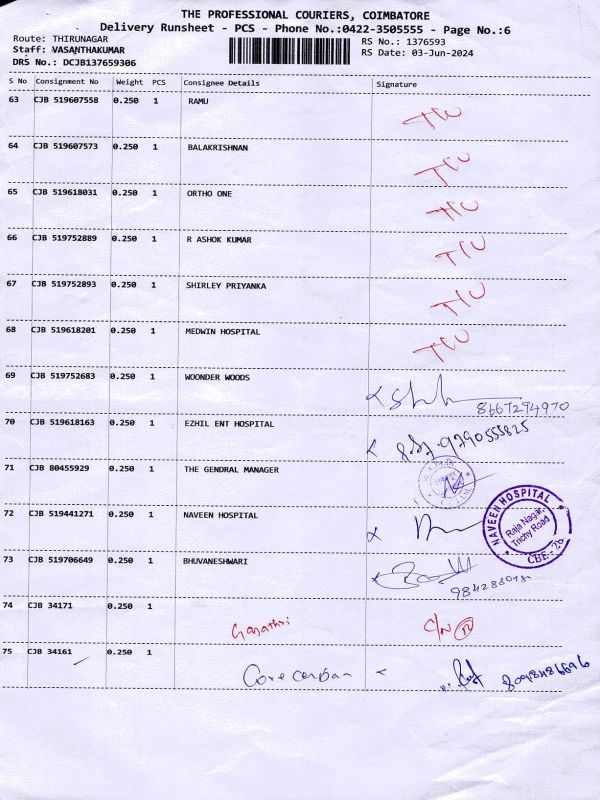 THE PROFESSIONAL COURIERS, COIMBATORE
Delivery Runsheet - PCS - Phone No.:0422-3505555 - Page No.:6
Route: THIRUNAGAR RS No.: 1376593
Staff: VASANTHAKUMAR RS Date: 03-Jun-2024
DRS No.: DCJB137659306
S No Consignment No Weight PCS Consignee Details Signature
63 CJB 519607558 0.250 1 RAMU
64 CJB 519607573 0.250 1 BALAKRISHNAN
65 CJB 519618031 0.250 1 ORTHO ONE
66 CJB 519752889 0.250 1 R ASHOK KUMAR
67 CJB 519752893 0.250 1 SHIRLEY PRIYANKA
68 CJB 519618201 0.250 1 MEDWIN HOSPITAL
69 CJB 519752683 0.250 1 WOONDER WOODS
8667294970
70 CJB 519618163 0.250 1 EZHIL ENT HOSPITAL 9790555825
71 CJB 80455929 0.250 1 THE GENDRAL MANAGER
72 CJB 519441271 0.250 1 NAVEEN HOSPITAL
NAVEEN HOSPITAL
Raja Nagar,
Trichy Road
CBE-
73 CJB 519706649 0.250 1 BHUVANESHWARI
74 CJB 34171 0.250 1
Gayathri
75 CJB 34161 0.250 1